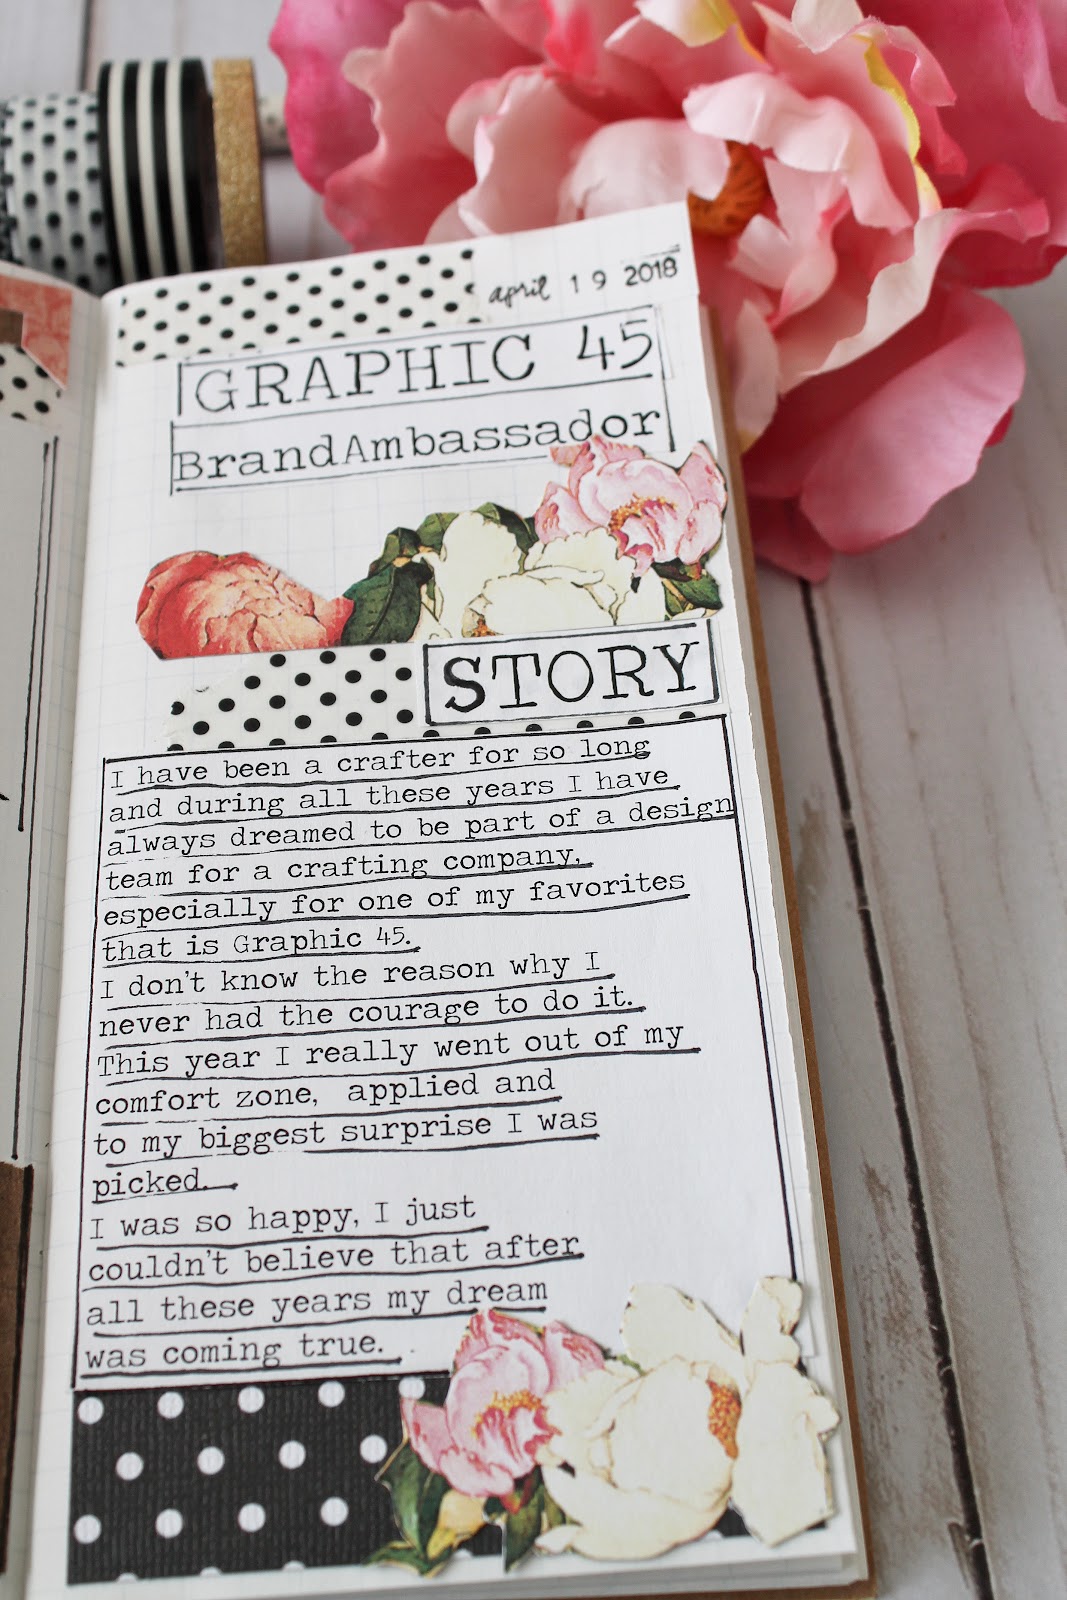 april 19 2018
GRAPHIC 45
BrandAmbassador
STORY
I have been a crafter for so long
and during all these years I have
always dreamed to be part of a design
team for a crafting company,
especially for one of my favorites
that is Graphic 45.
I don't know the reason why I
never had the courage to do it.
This year I really went out of my
comfort zone, applied and
to my biggest surprise I was
picked.
I was so happy, I just
couldn't believe that after
all these years my dream
was coming true.